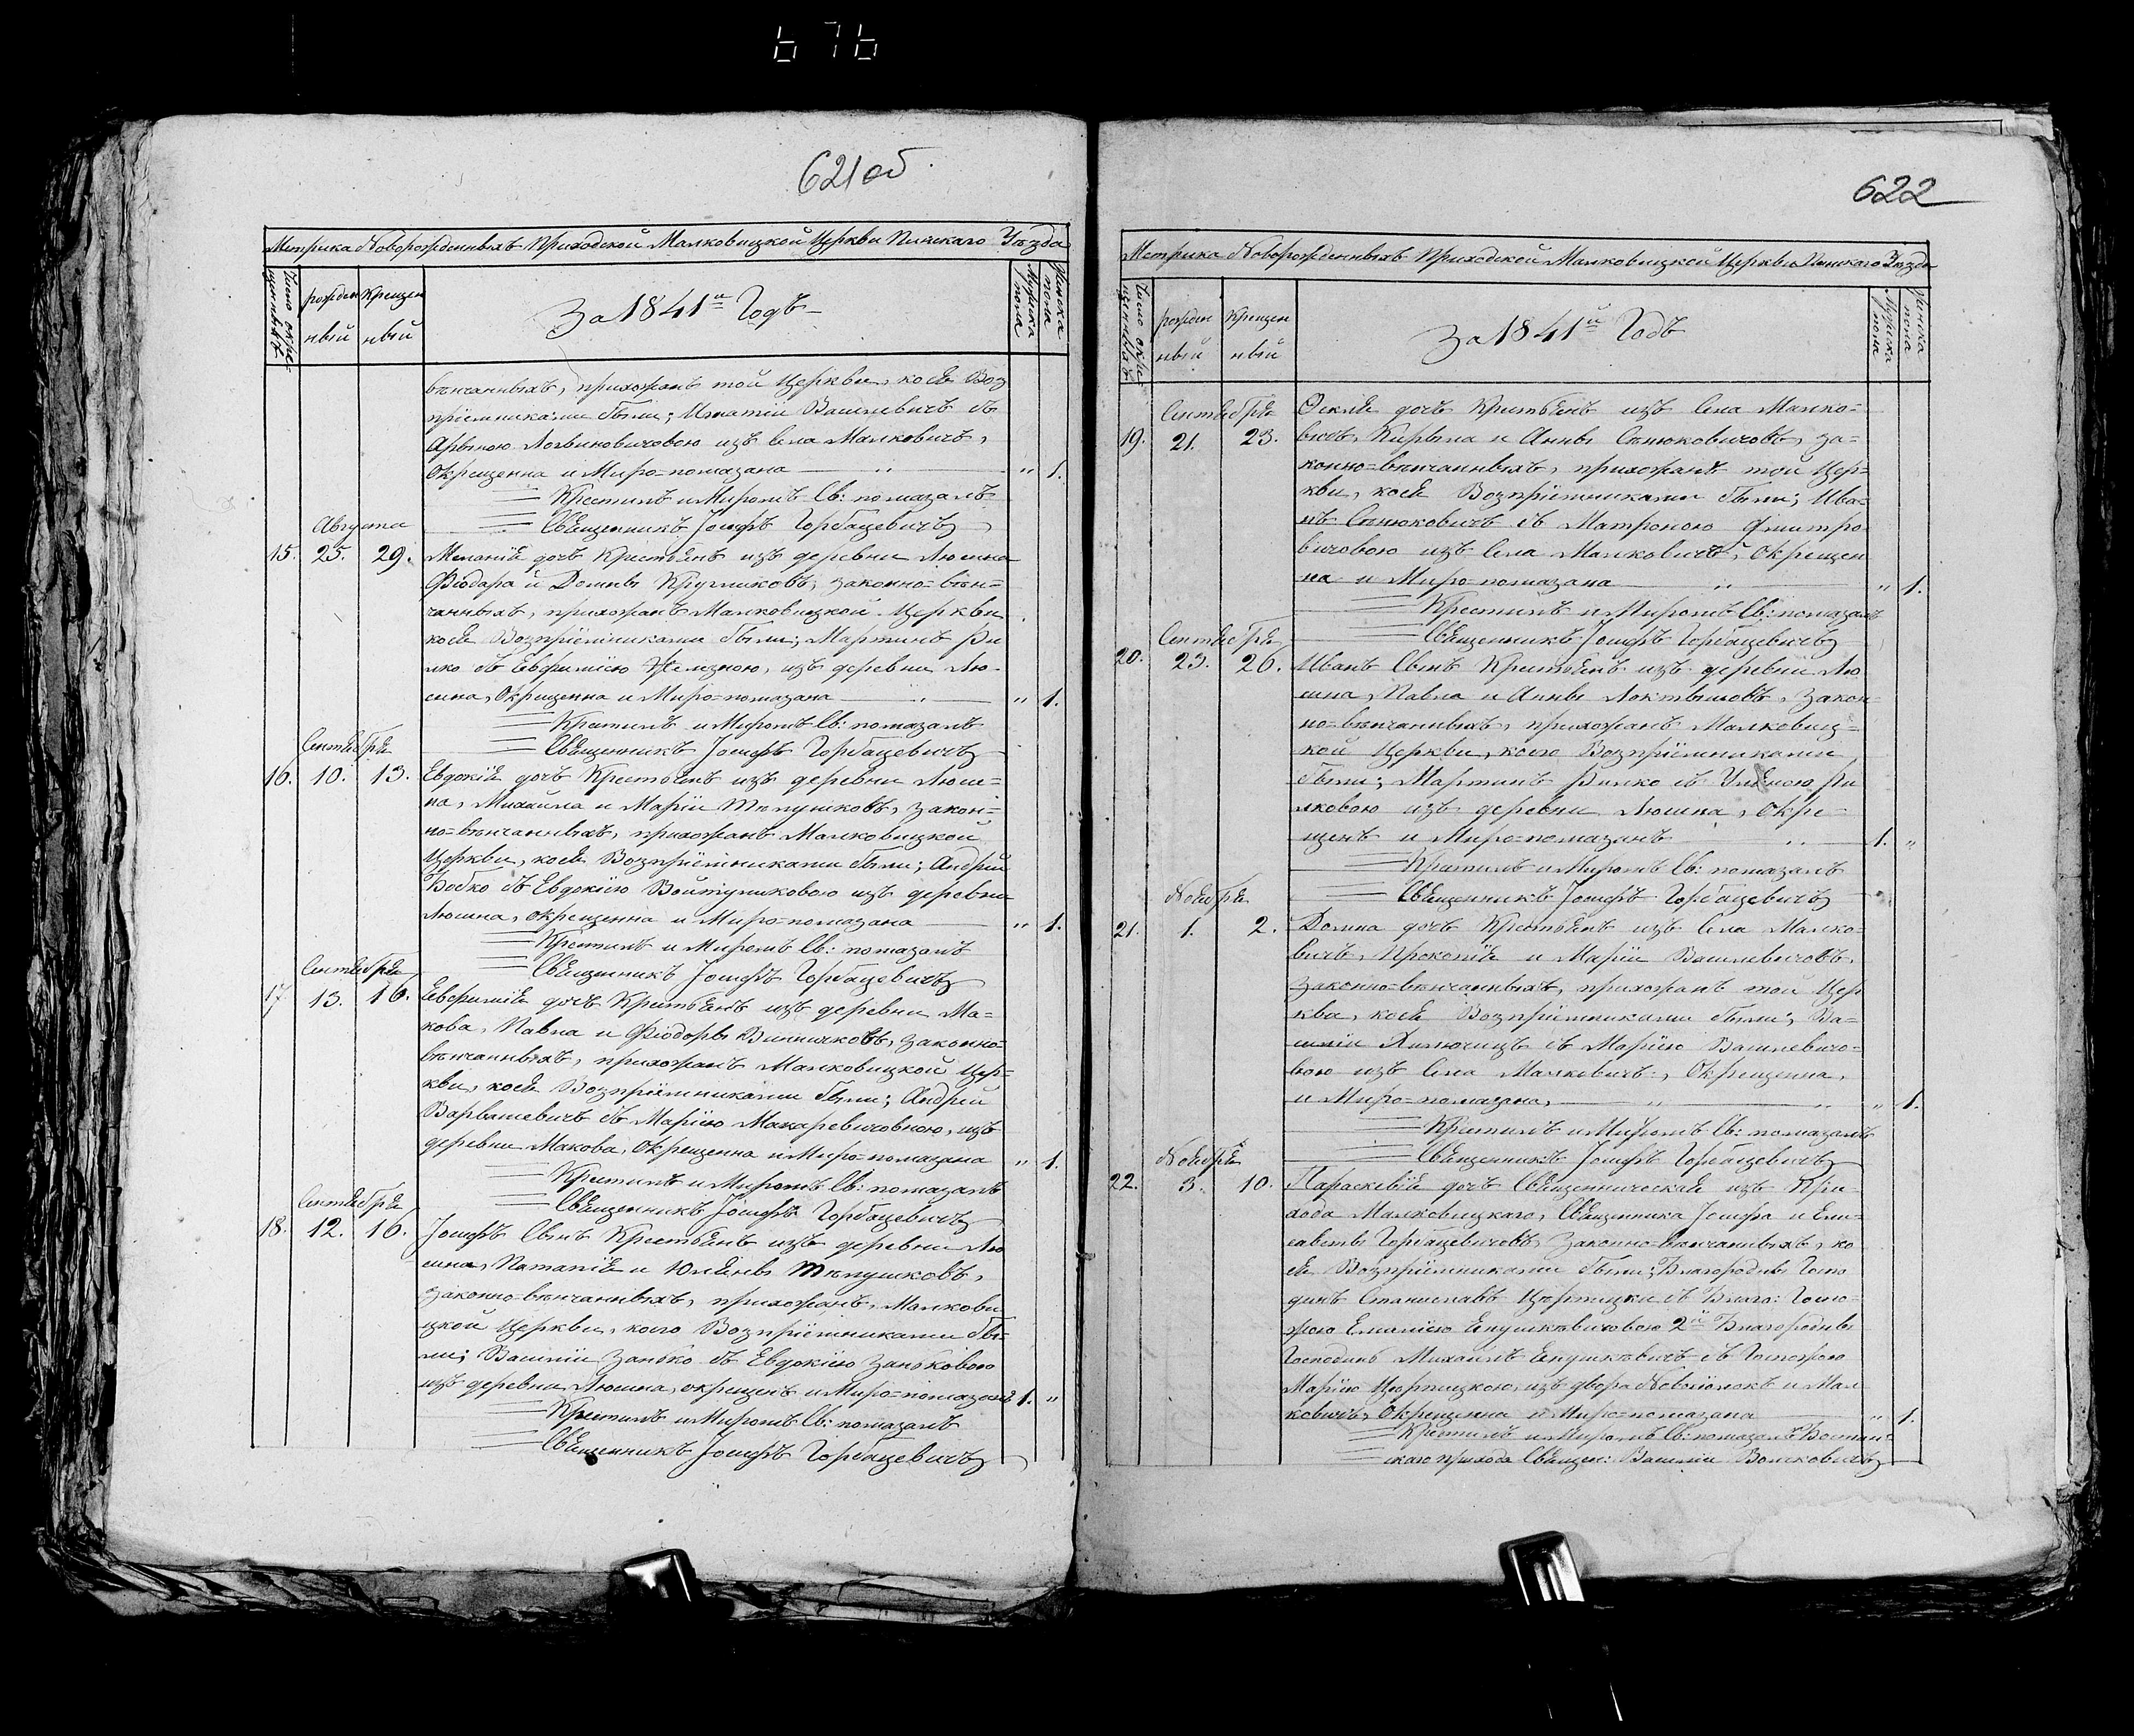 676
621об
Метрика Новорожденныхъ Приходской Малковицкой Церкви Пинскаго Уѣзда
Число окре-
щенныхъ
рожден
ный
Крещен
ный
За 1841й Годъ
Мужеска
пола
Женска
пола
вѣнчанныхъ, прихожанъ той Церкви, коея Воз
пріемниками были; Игнатій Василевичъ съ
Логвиновичовою изъ Села Малковичъ,
Окрещенна и Миро-помазана " 1.
Крестилъ и Миромъ Св: помазалъ
Священникъ Іосифъ Горбацевичъ
Августа
15. 25. 29. Меланія дочь Крестьянъ изъ деревни Люсина
Фіодара и Домны Кругликовъ, законно-вѣн-
чанныхъ, прихожанъ Малковицкой Церкви
коея Возпріемниками были; Мартинъ Ри
лко съ Евфиміею изъ деревни Лю-
сина, Окрещенна и Миро-помазана " 1.
Крестилъ и Миромъ Св: помазалъ
Священникъ Іосифъ Горбацевичъ
Сентября
16. 10. 13. Евдокія дочь Крестьянъ изъ деревни Люси-
на, Михайла и Маріи закон-
но-вѣнчанныхъ, прихожанъ Малковицкой
Церкви, коея Возпріемниками были; Андрей
Бобко съ Евдокіею Войтуликовою изъ деревни
Люсина, окрещенна и Миро-помазана " 1.
Крестилъ и Миромъ Св: помазалъ
Священникъ Іосифъ Горбацевичъ
Сентября
17. 13. 16. Евфимія дочь Крестьянъ изъ деревни Ма-
кова, Павла и Фіодоры законно-
вѣнчанныхъ, прихожанъ Малковицкой Цер-
кви, коея Возпріемниками были; Андрей
Варвашевичъ съ Маріею Макаревичовною, изъ
деревни Макова, Окрещенна и Миро-помазана " 1.
Крестилъ и Миромъ Св: помазалъ
Священникъ Іосифъ Горбацевичъ
Сентября
18. 12. 16. Іосифъ Сынъ Крестьянъ изъ деревни Лю
сина, Потапія и Юліяны
законно-вѣнчанныхъ, прихожанъ, Малкови
цкой Церкви, коего Возпріемниками бы-
ли; Василій Занько съ Евдокіею Заньковою
изъ деревни Люсина, окрещенъ и Миро-помазанъ 1. "
Крестилъ и Миромъ Св: помазалъ
Священникъ Іосифъ Горбацевичъ
622
Метрика Новорожденныхъ Приходской Малковицкой Церкви Пинскаго Уѣзда
Число окре-
щенныхъ
рожден
ный
Крещен
ный
За 1841й Годъ
Мужеска
пола
Женска
пола
Сентября
Ѳекля дочь Крестьянъ изъ Села Малко-
19. 21. 23. вичъ, Кирыла и Анны Сенюковичовъ, за-
конно-вѣнчанныхъ, прихожанъ той Цер-
кви, коея Возпріемниками были; Ива-
нъ Сенюковичъ съ Матроною Дмитро
вичовою изъ Села Малковичъ, Окрещен
на и Миро-помазана " 1.
Крестилъ и Миромъ Св: помазалъ
Священникъ Іосифъ Горбацевичъ
Сентября
20. 23. 26. Иванъ Сынъ Крестьянъ изъ деревни Лю
сина, Павла и Анны Локтышовъ, Закон-
но-вѣнчанныхъ, прихожанъ Малковиц-
кой Церкви, коего Возпріемниками
были; Мартинъ Рилко съ Уляною Ри
лковою изъ деревни Люсина, Окре-
щенъ и Миро-помазанъ 1. "
Крестилъ и Миромъ Св: помазалъ
Священникъ Іосифъ Горбацевичъ
Ноября
21. 1. 2. Домна дочь Крестьянъ изъ Села Малко-
вичъ, Прокопія и Маріи Василевичовъ,
Законно-вѣнчанныхъ, прихожанъ той Цер
кви, коея Возпріемниками были; Ва-
силій съ Маріею Василевичо-
вою изъ Села Малковичъ, Окрещенна,
и Миро-помазана, " 1.
Крестилъ и Миромъ Св: помазалъ
Священникъ Іосифъ Горбацевичъ
Ноября
22. 3. 10. Параскевія дочь Священническая изъ При-
хода Малковицкаго, Священника Іосифа и Ели-
саветы Горбацевичовъ, Законно-вѣнчанныхъ, ко
ея Возпріемниками были; Благородны Госпо
динъ Станиславъ съ Благо: Госпо-
жою Емиліею 2й Благородны
Господинъ Михаилъ съ Госпожою
Маріею изъ двора и Мал
ковичъ, Окрещенна и Миро-помазана " 1.
Крестилъ и Миромъ Св: помазалъ
скаго прихода Священ: Василій